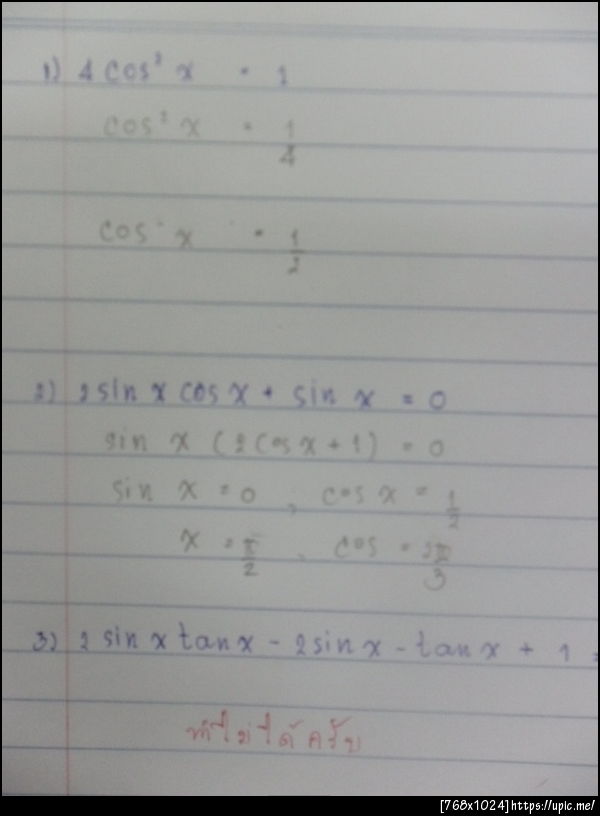 1) 4 cos² x = 1
cos² x = 1/4
cos x = 1/2
2) 2 sin x cos x + sin x = 0
sin x (2 cos x + 1) = 0
sin x = 0 , cos x = 1/2
x = π/2 , cos = 2π/3
3) 2 sin x tan x - 2 sin x - tan x + 1 =
ทำไม่ได้ครับ
[768x1024]https://upic.me/